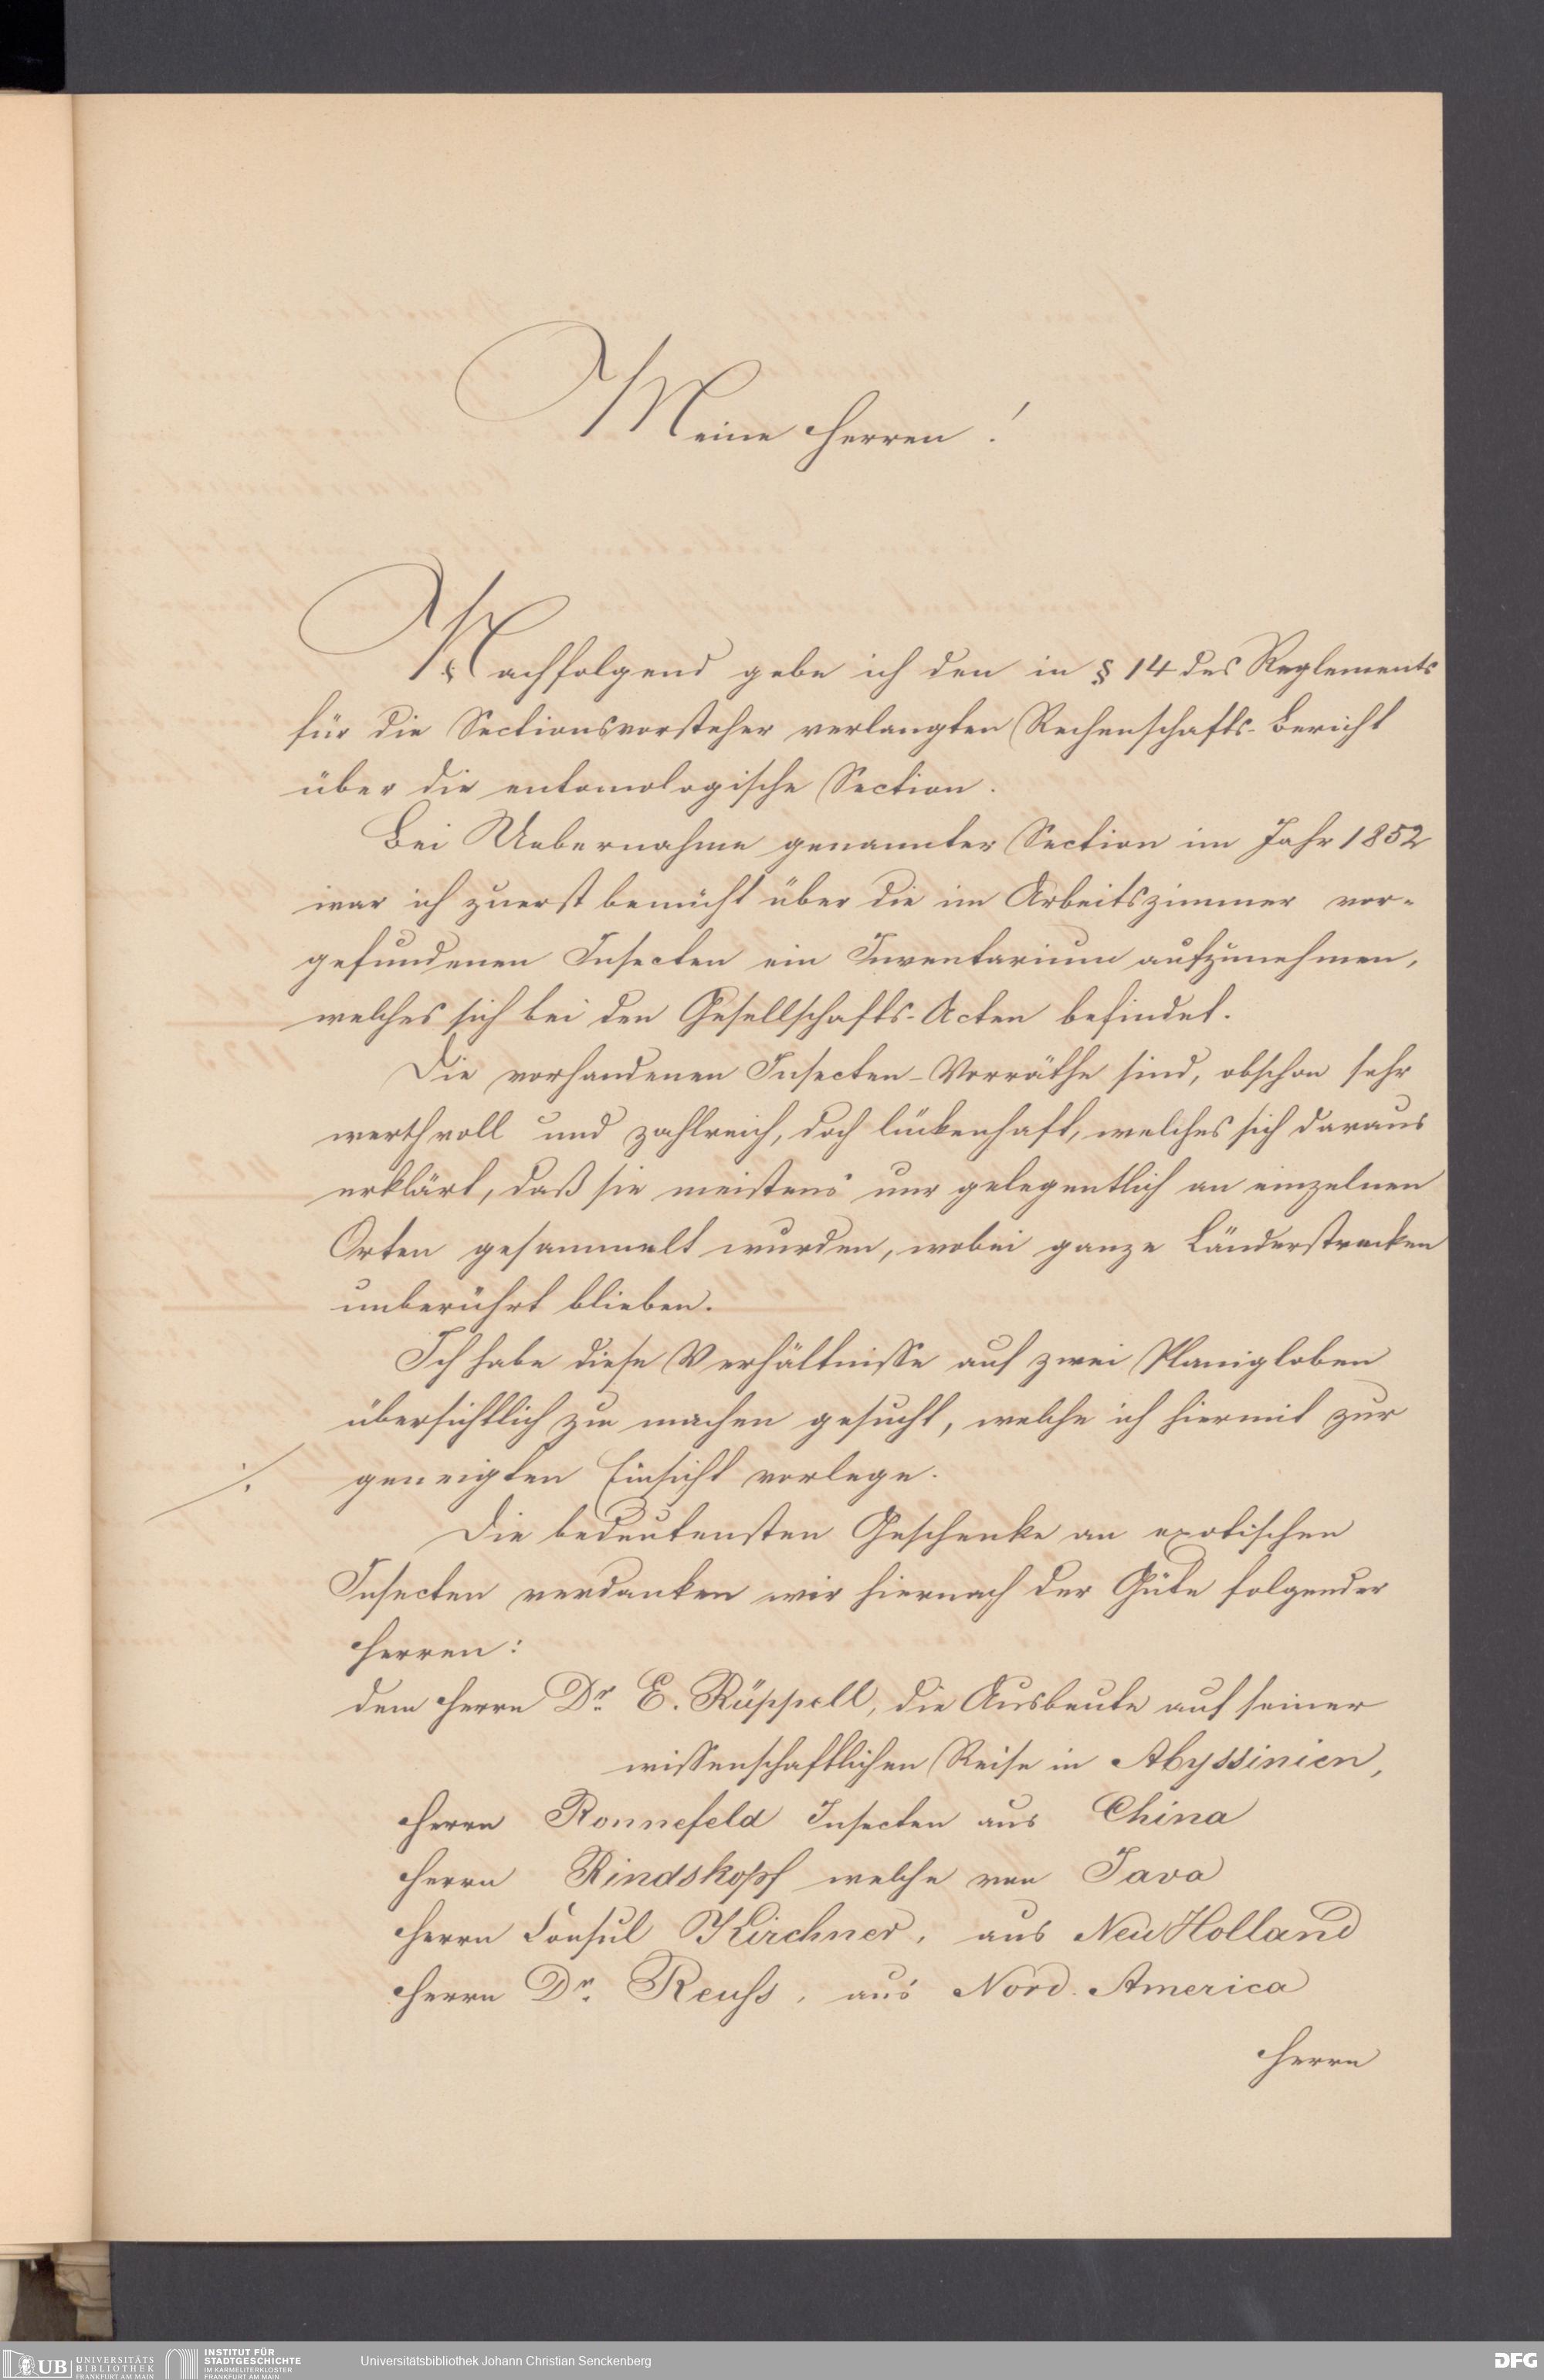 Meine Herren!
Nachfolgend gebe ich den in § 14 des Reglements
für die Sectionsvorsteher verlangten Rechenschafts-Bericht
über die entomologische Section.
Bei Uebernahme genannter Section im Jahr 1852
war ich zuerst bemüht über die im Arbeitszimmer vor-
gefundenen Insecten ein Inventarium aufzunehmen,
welches sich bei den Gesellschafts-Acten befindet.
Die vorhandenen Insecten-Vorräthe sind, obschon sehr
werthvoll und zahlreich, doch lückenhaft, welches sich daraus
erklärt, daß sie meistens nur gelegentlich an einzelnen
Orten gesammelt wurden, wobei ganze Länderstrecken
unberührt blieben.
Ich habe diese Verhältnisse auf zwei Planigloben
übersichtlich zu machen gesucht, welche ich hiermit zur
./. geneigten Einsicht vorlege.
Die bedeutensten Geschenke an exotischen
Insecten verdanken wir hiernach der Güte folgender
Herren:
dem Herrn Dr. E. Rüppell, die Ausbeute auf seiner
wissenschaftlichen Reise in Abyssinien,
Herrn Ronnefeld Insecten aus China
Herrn Rindskopf welche von Java
Herrn Consul Kirchner, aus Neu Holland
Herrn Dr. Reuss, aus Nord. America
Herrn
UB UNIVERSITÄTS
BIBLIOTHEK
FRANKFURT AM MAIN
INSTITUT FÜR
STADTGESCHICHTE
IM KARMELITERKLOSTER
FRANKFURT AM MAIN
Universitätsbibliothek Johann Christian Senckenberg
DFG